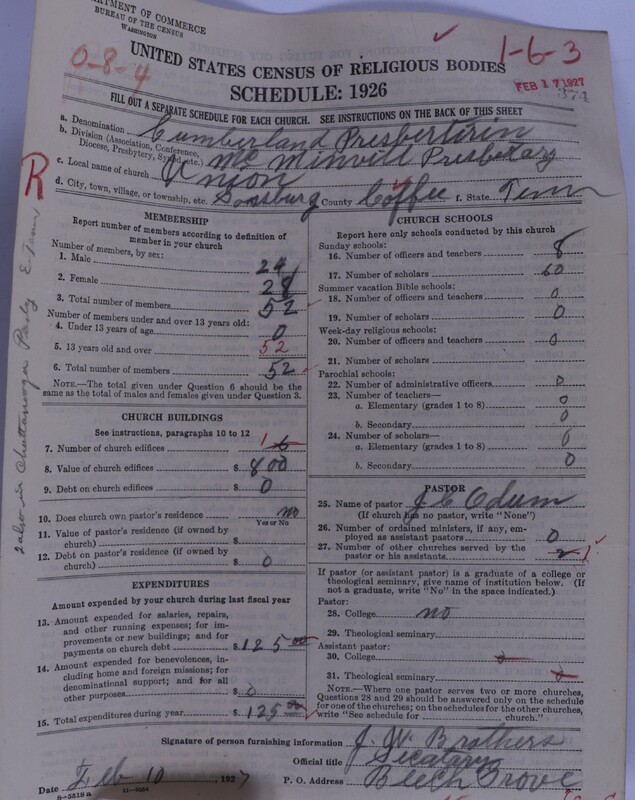 DEPARTMENT OF COMMERCE
BUREAU OF THE CENSUS
WASHINGTON
1-6-3
0-8-4
UNITED STATES CENSUS OF RELIGIOUS BODIES
FEB 17 1927
374
SCHEDULE: 1926
FILL OUT A SEPARATE SCHEDULE FOR EACH CHURCH. SEE INSTRUCTIONS ON THE BACK OF THIS SHEET
a. Denomination Cumberland Presberterin
b. Division (Association, Conference, Diocese, Presbytery, Synod, etc.) Mc Minvill Presbetary
R
c. Local name of church Union
d. City, town, village, or township, etc. County Coffee f. State Tenn
MEMBERSHIP
Report number of members according to definition of
member in your church
Number of members, by sex:
1. Male 24
2. Female 28
3. Total number of members 52
Number of members under and over 13 years old:
4. Under 13 years of age 0
5. 13 years old and over 52
6. Total number of members 52
NOTE.—The total given under Question 6 should be
same as the total of males and females given under Question 3.
CHURCH BUILDINGS
See instructions, paragraphs 10 to 12
7. Number of church edifices 1
8. Value of church edifices $ 800
9. Debt on church edifices $ 0
10. Does church own pastor's residence no
Yes or No
11. Value of pastor's residence (if owned by
church) $
12. Debt on pastor's residence (if owned by
church) $ 0
EXPENDITURES
Amount expended by your church during last fiscal year
13. Amount expended for salaries, repairs,
and other running expenses; for im-
provements or new buildings; and for
payments on church debt $ 125 00
14. Amount expended for benevolences, in-
cluding home and foreign missions; for
denominational support; and for all
other purposes $ 0
15. Total expenditures during year $ 125 00
CHURCH SCHOOLS
Report here only schools conducted by this church
Sunday schools:
16. Number of officers and teachers 8
17. Number of scholars 60
Summer vacation Bible schools:
18. Number of officers and teachers 0
19. Number of scholars 0
Week-day religious schools:
20. Number of officers and teachers 0
21. Number of scholars
Parochial schools:
22. Number of administrative officers 0
23. Number of teachers—
a. Elementary (grades 1 to 8) 0
b. Secondary 0
24. Number of scholars—
a. Elementary (grades 1 to 8) 0
b. Secondary 0
PASTOR
25. Name of pastor J C Odum
(If church has no pastor, write "None")
26. Number of ordained ministers, if any, em-
ployed as assistant pastors 0
27. Number of other churches served by the
pastor or his assistants 2 1
If pastor (or assistant pastor) is a graduate of a college or
theological seminary, give name of institution below. (If
not a graduate, write "No" in the space indicated.)
Pastor:
28. College no
29. Theological seminary
Assistant pastor:
30. College 0
31. Theological seminary 0
NOTE.—Where one pastor serves two or more churches,
Questions 28 and 29 should be answered only on the schedule
for one of the churches; on the schedules for the other churches,
write "See schedule for church."
Signature of person furnishing information J. W. Brothers
Official title Secatary
Date Feb 10, 1927 P. O. Address Beech Grove
8-5518 a 11-9084
also in Chattanooga Presby E. Tenn